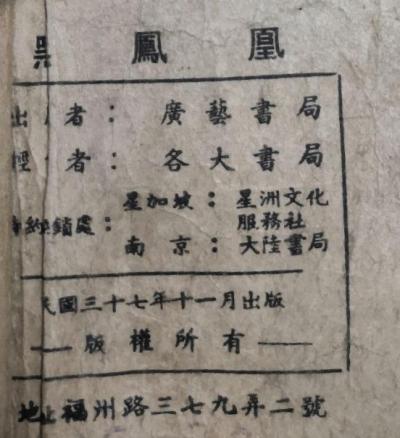 鳳凰
出 者：廣藝書局
經 者：各大書局
經銷處：
星加坡：星洲文化
服務社
南京：大陸書局
民國三十七年十一月出版
版權所有
地址福州路三七九弄二號